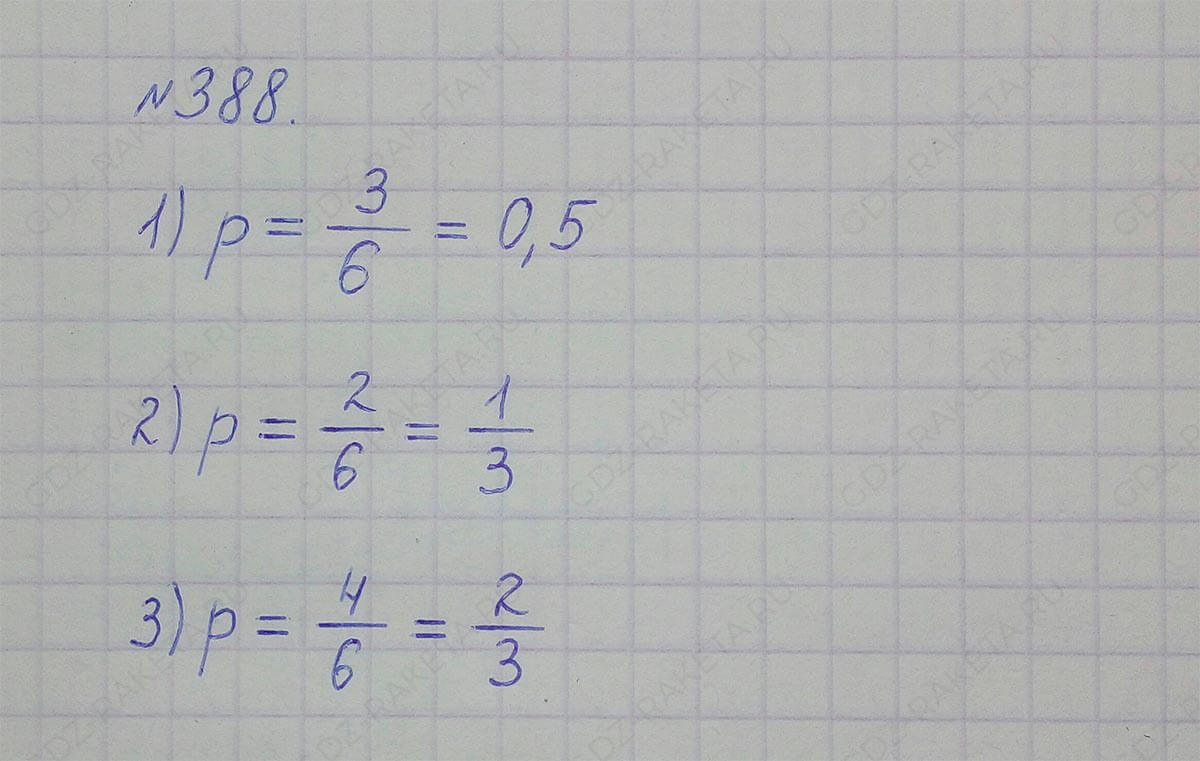 №388.
1) p = 3/6 = 0,5
2) p = 2/6 = 1/3
3) p = 4/6 = 2/3
GDZ-RAKETA.RU